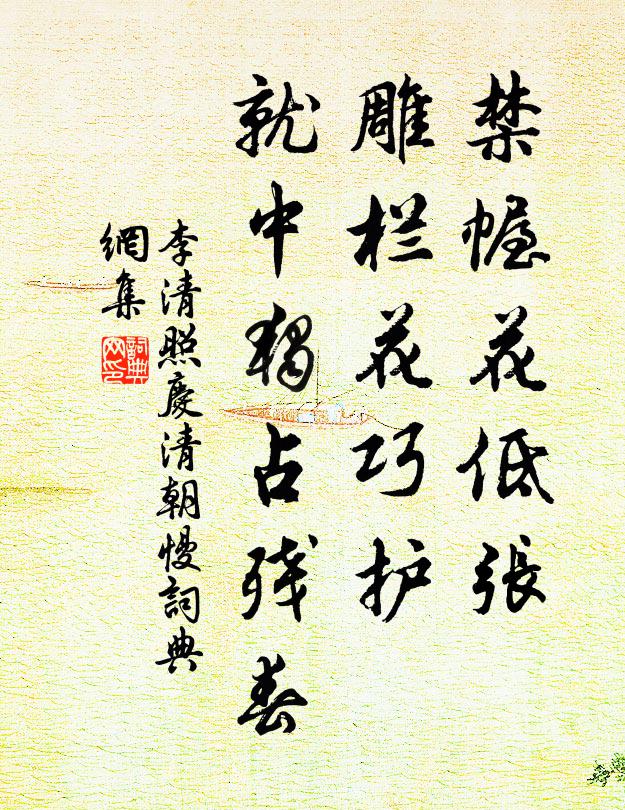 禁幄花低張
雕栏花巧护
就中獨占残春
李清照慶清朝慢詞典
網集
詞典
网印